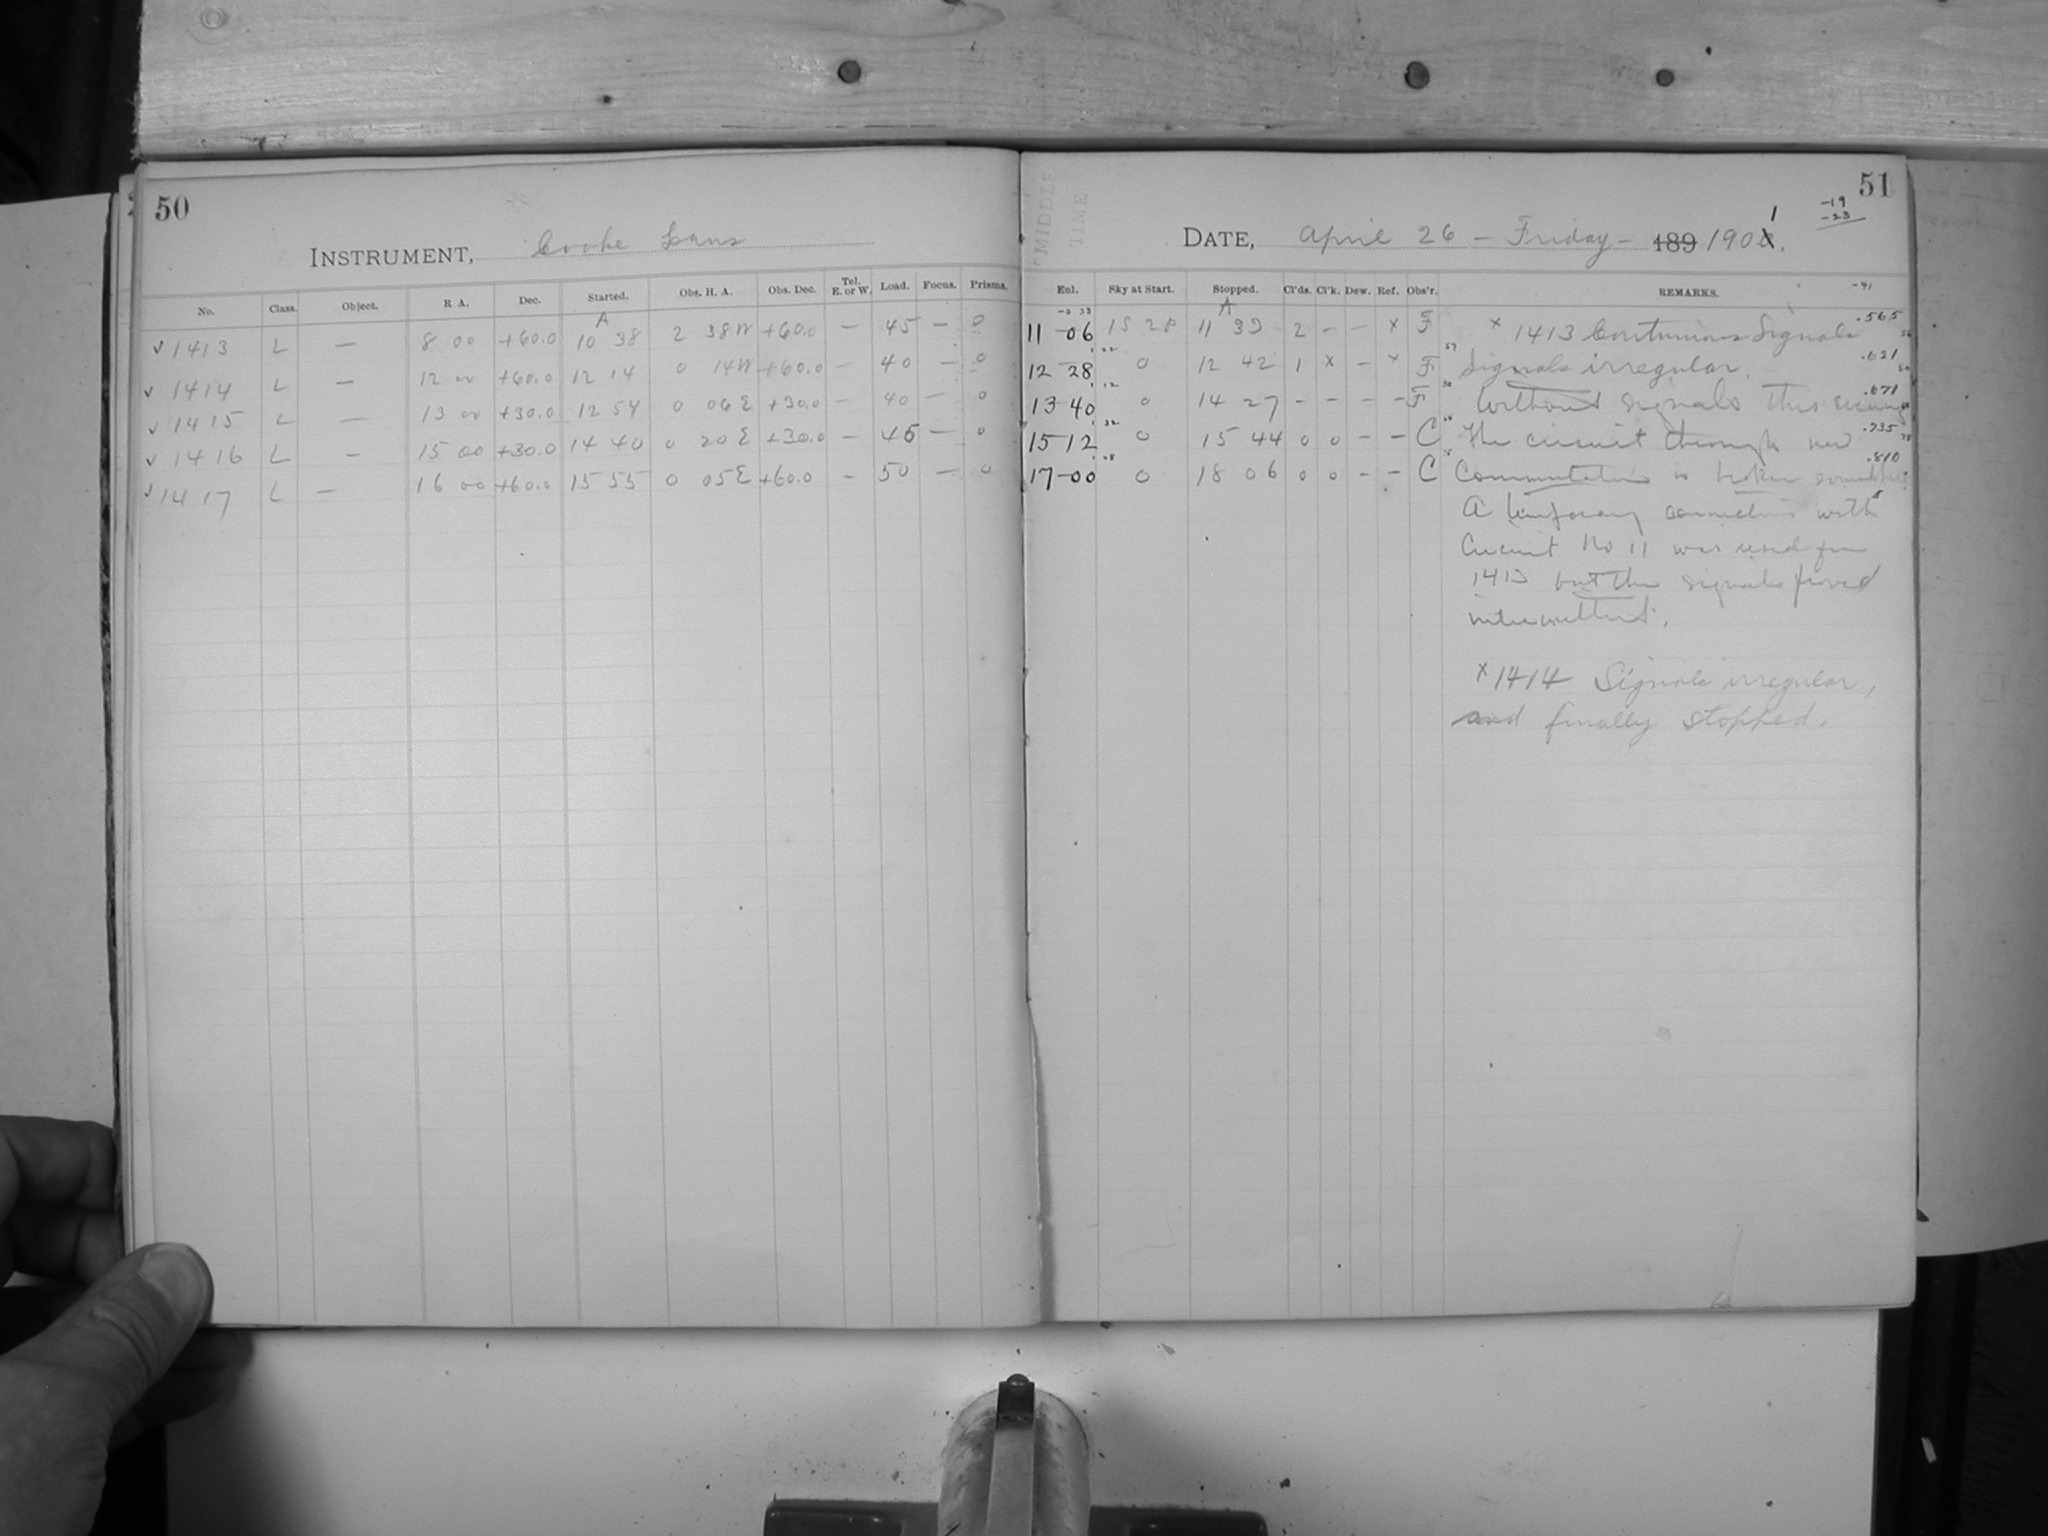 50
INSTRUMENT, Cooke Lens
No. Class. Object. R A. Dec. Started. Obs. H. A. Obs. Dec. Tel. E. or W. Load. Focus. Prisms.
A
√ 1413 L — 8 00 +60.0 10 38 2 38 W +60.0 — 45 — 0
√ 1414 L — 12 00 +60.0 12 14 0 14 W +60.0 — 40 — 0
√ 1415 L — 13 00 +30.0 12 54 0 06 E +30.0 — 40 — 0
√ 1416 L — 15 00 +30.0 14 40 0 20 E +30.0 — 45 — 0
√ 1417 L — 16 00 +60.0 15 55 0 05 E +60.0 — 50 — 0
51
-19
-23
MIDDLE
TIME
DATE, April 26 — Friday — 189 1901.
Enl. Sky at Start. Stopped. Cl'ds. Cl'k. Dew. Ref. Obs'r. REMARKS.
-91
A
11-06 11 2 — — x F x 1413 Continuous Signals .565
12-28 0 12 42 1 x — x F Signals irregular. .621
13-40 0 14 27 - - - - F Without signals this evening .671
15-12 0 15 44 0 0 — — C The circuit through new .735
17-00 0 18 06 0 0 — — C Commutator is broken .810
A temporary connection with
Circuit No 11 was used for
1413 but the signals proved
intermittent.
x 1414 Signals irregular,
and finally stopped.